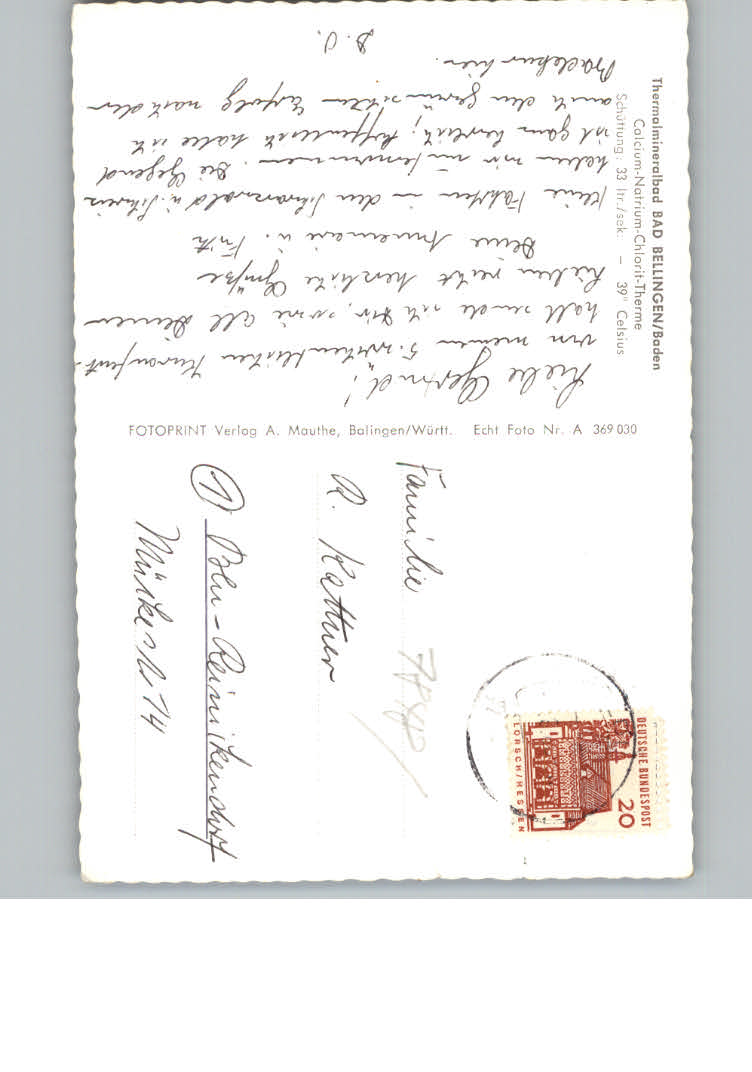 Thermalmineralbad BAD BELLINGEN/Baden
Calcium-Natrium-Chlorit-Therme
Schüttung: 33 ltr./sek. – 39° Celsius
Liebe Gertrud!
von meinem 5-wöchentlichen Kuraufent-
halt sende ich Dir, sowie all Deinen
Lieben recht herzliche Grüße
Deine Annemarie u. Fritz
Kleine Fahrten in den Schwarzwald u. Schweiz
haben wir unternommen. Die Gegend
ist ganz herrlich; hoffentlich habe ich
auch den gewünschten Erfolg nach den
Badekur hier.
D. O.
FOTOPRINT Verlag A. Mauthe, Balingen/Württ. Echt Foto Nr. A 369 030
Familie
R. Kattner
Bln-Reinickendorf
74
DEUTSCHE BUNDESPOST
20
LORSCH/HESSEN